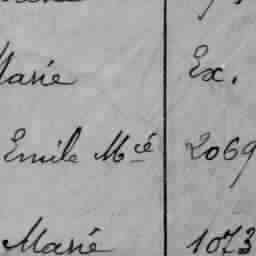 Marié Ex.
Emile Mcé 2069
Marié 1073